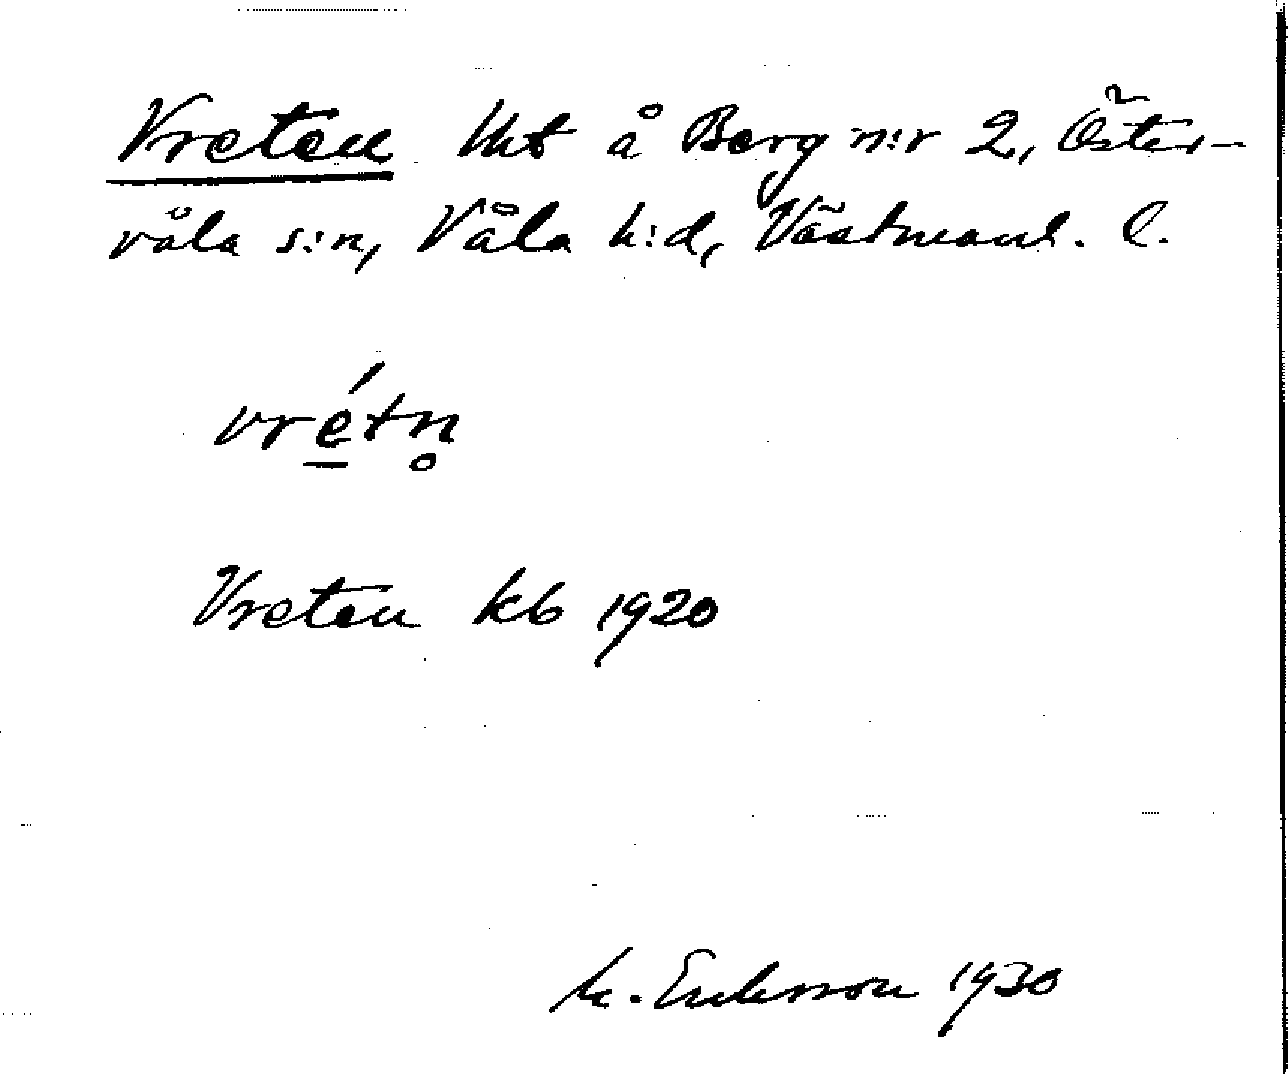 Vreten lht å Berg n:r 2, Öster-
våla s:n, Våla h:d, Västmanl. l.
vrétn̥
Vreten kb 1920
M. Eriksson 1930